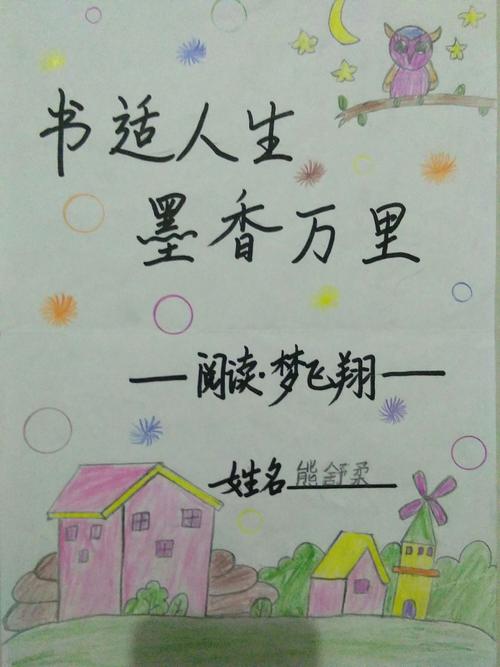 书适人生
墨香万里
—阅读·梦飞翔—
姓名熊舒柔